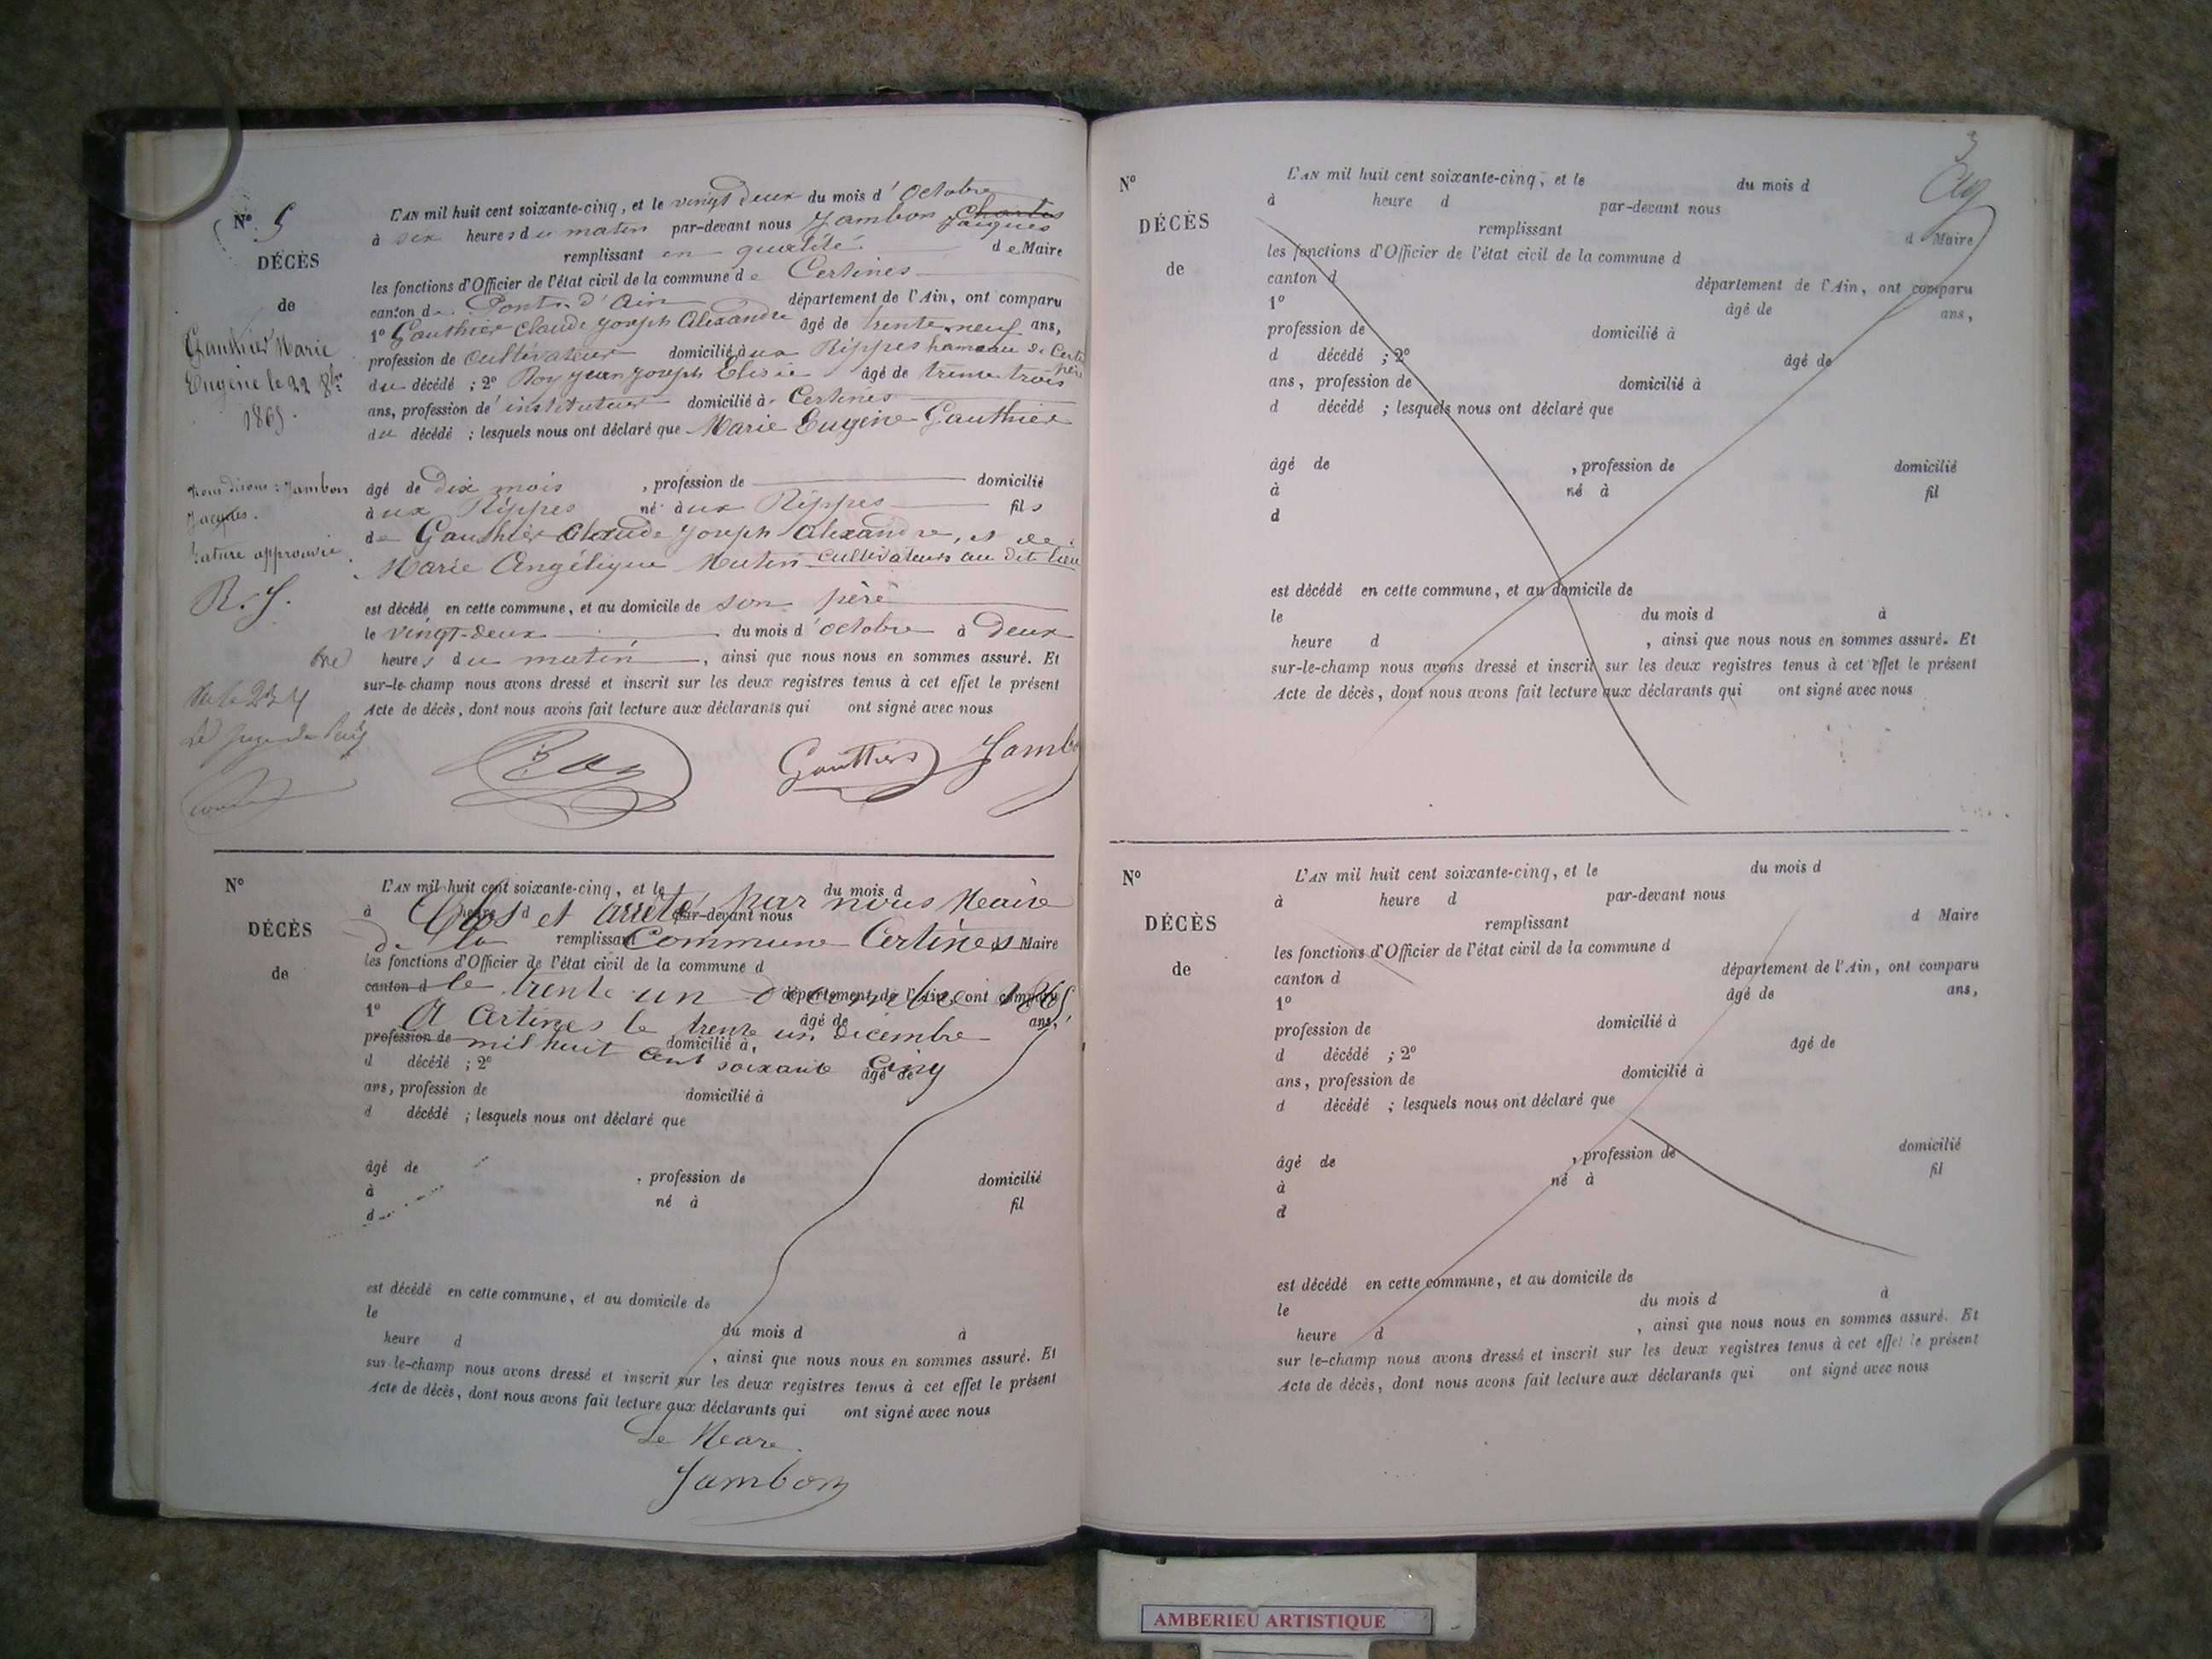 N° 5
DÉCÈS
de
Gauthier Marie
Eugène le 22 8bre
1865.
L'AN mil huit cent soixante-cinq, et le vingt deux du mois d'Octobre
à six heures du matin par-devant nous Jambon Charles
Jacques
remplissant en qualité de Maire
les fonctions d'Officier de l'état civil de la commune de Certines
canton de Pont-d'Ain département de l'Ain, ont comparu
1° Gauthier Claude Joseph Alexandre âgé de trente neuf ans,
profession de cultivateur domicilié aux Rippes hameau de Certi
père
du décédé ; 2° Roy Jean Joseph Elisée âgé de trente trois
ans, profession de instituteur domicilié à Certines
du décédé ; lesquels nous ont déclaré que Marie Eugène Gauthier
nous disons : Jambon
Jacques.
Rature approuvée
R. J.
âgé de dix mois , profession de domicilié
aux Rippes né aux Rippes fils
de Gauthier Claude Joseph Alexandre, et de
Marie Angélique Mutin cultivateurs au dit lieu
est décédé en cette commune, et au domicile de son père
le vingt-deux du mois d'octobre à deux
heures du matin , ainsi que nous nous en sommes assuré. Et
sur-le-champ nous avons dressé et inscrit sur les deux registres tenus à cet effet le présent
Acte de décès, dont nous avons fait lecture aux déclarants qui ont signé avec nous
Le Juge de Paix
Roy Gauthier Jambo
N°
DÉCÈS
de
L'AN mil huit cent soixante-cinq, et le du mois d
à heure d par-devant nous
Clos et arrêté par nous Maire
remplissant d Maire
de la Commune Certines
les fonctions d'Officier de l'état civil de la commune d
canton d département de l'Ain, ont comparu
le trente un décembre 1865
1° âgé de ans,
A Certines le trente un décembre
profession de domicilié à
mil huit cent soixante cinq
d décédé ; 2° âgé de
ans, profession de domicilié à
d décédé ; lesquels nous ont déclaré que
âgé de , profession de domicilié
à né à fil
d
est décédé en cette commune, et au domicile de
le du mois d à
heure d , ainsi que nous nous en sommes assuré. Et
sur-le-champ nous avons dressé et inscrit sur les deux registres tenus à cet effet le présent
Acte de décès, dont nous avons fait lecture aux déclarants qui ont signé avec nous
Le Maire
Jambon
3
N°
DÉCÈS
de
L'AN mil huit cent soixante-cinq, et le du mois d
à heure d par-devant nous
remplissant d Maire
les fonctions d'Officier de l'état civil de la commune d
canton d département de l'Ain, ont comparu
1° âgé de ans,
profession de domicilié à
d décédé ; 2° âgé de
ans, profession de domicilié à
d décédé ; lesquels nous ont déclaré que
âgé de , profession de domicilié
à né à fil
d
est décédé en cette commune, et au domicile de
le du mois d à
heure d , ainsi que nous nous en sommes assuré. Et
sur-le-champ nous avons dressé et inscrit sur les deux registres tenus à cet effet le présent
Acte de décès, dont nous avons fait lecture aux déclarants qui ont signé avec nous
N°
DÉCÈS
de
L'AN mil huit cent soixante-cinq, et le du mois d
à heure d par-devant nous
remplissant d Maire
les fonctions d'Officier de l'état civil de la commune d
canton d département de l'Ain, ont comparu
1° âgé de ans,
profession de domicilié à
d décédé ; 2° âgé de
ans, profession de domicilié à
d décédé ; lesquels nous ont déclaré que
âgé de , profession de domicilié
à né à fil
d
est décédé en cette commune, et au domicile de
le du mois d à
heure d , ainsi que nous nous en sommes assuré. Et
sur le-champ nous avons dressé et inscrit sur les deux registres tenus à cet effet le présent
Acte de décès, dont nous avons fait lecture aux déclarants qui ont signé avec nous
AMBERIEU ARTISTIQUE